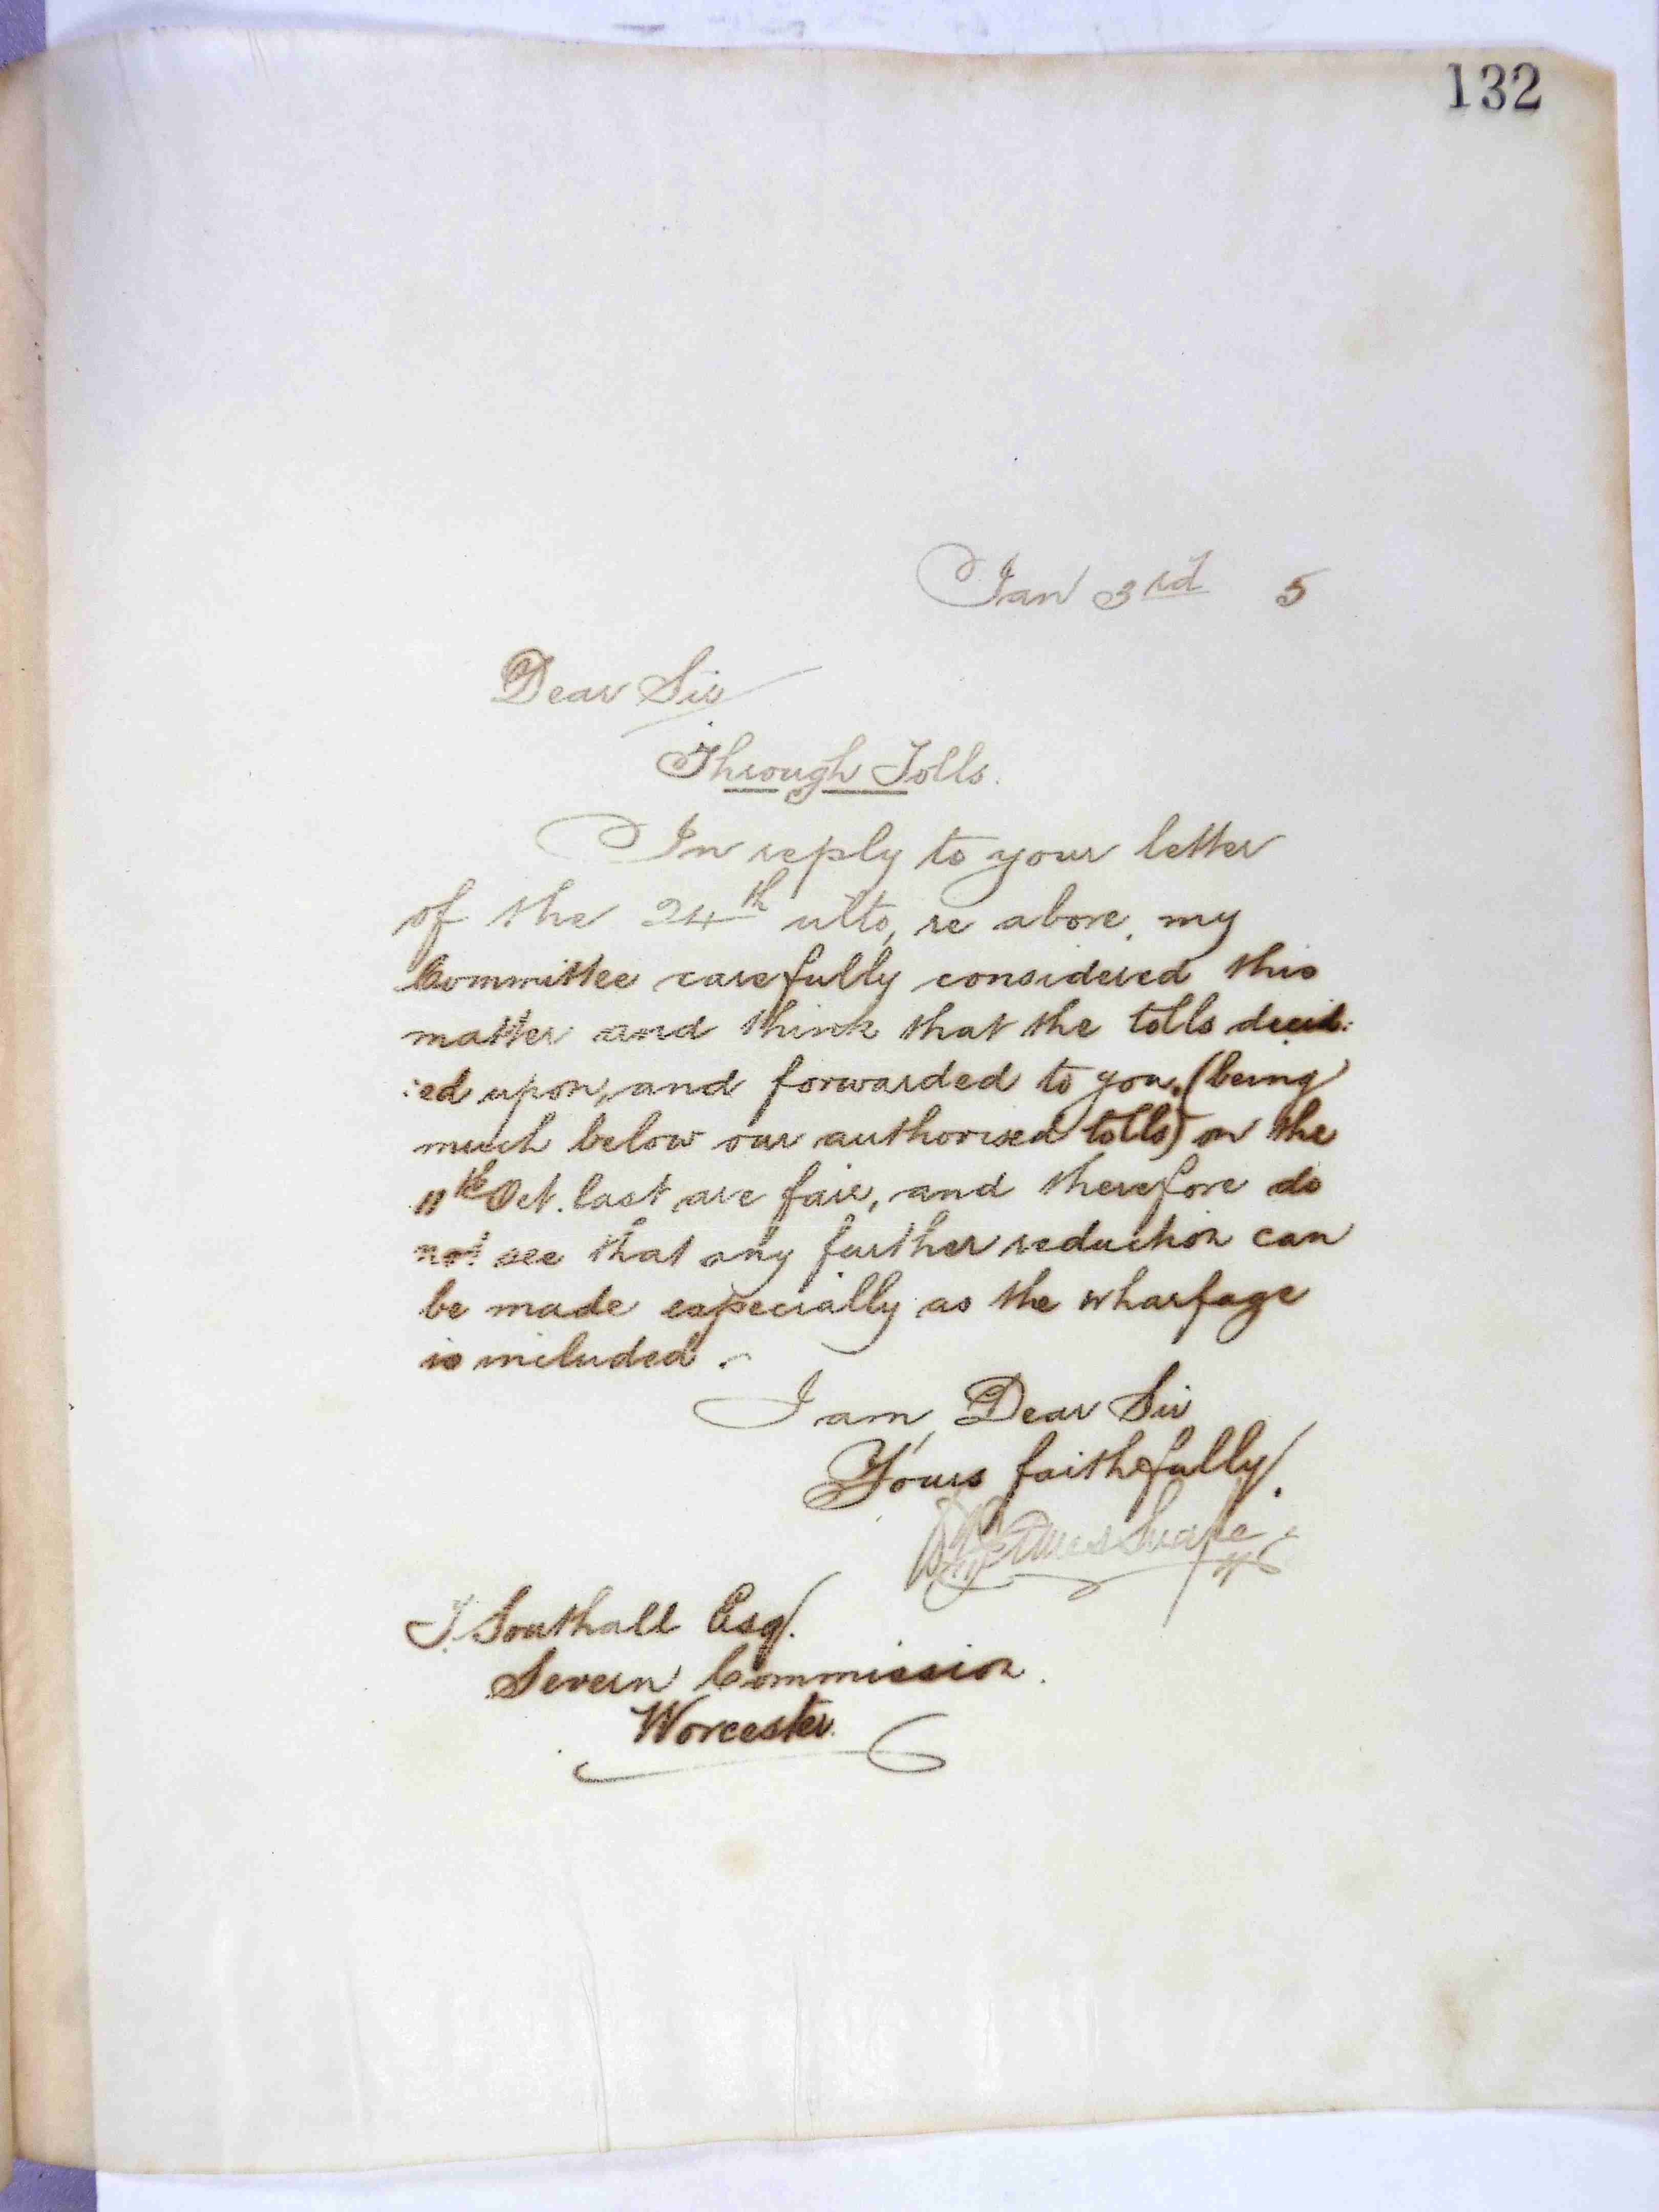 132
Jan 3rd 5
Dear Sir
Through Tolls.
In reply to your letter
of the 24th ulto, re above, my
Committee carefully considered this
matter and think that the tolls decid:
:ed upon, and forwarded to you, (being
much below our authorised tolls) on the
11th Oct. last are fair, and therefore do
not see that any further reduction can
be made especially as the wharfage
is included.
I am, Dear Sir
Yours faithfully
Southall Esq.
Severn Commission.
Worcester.